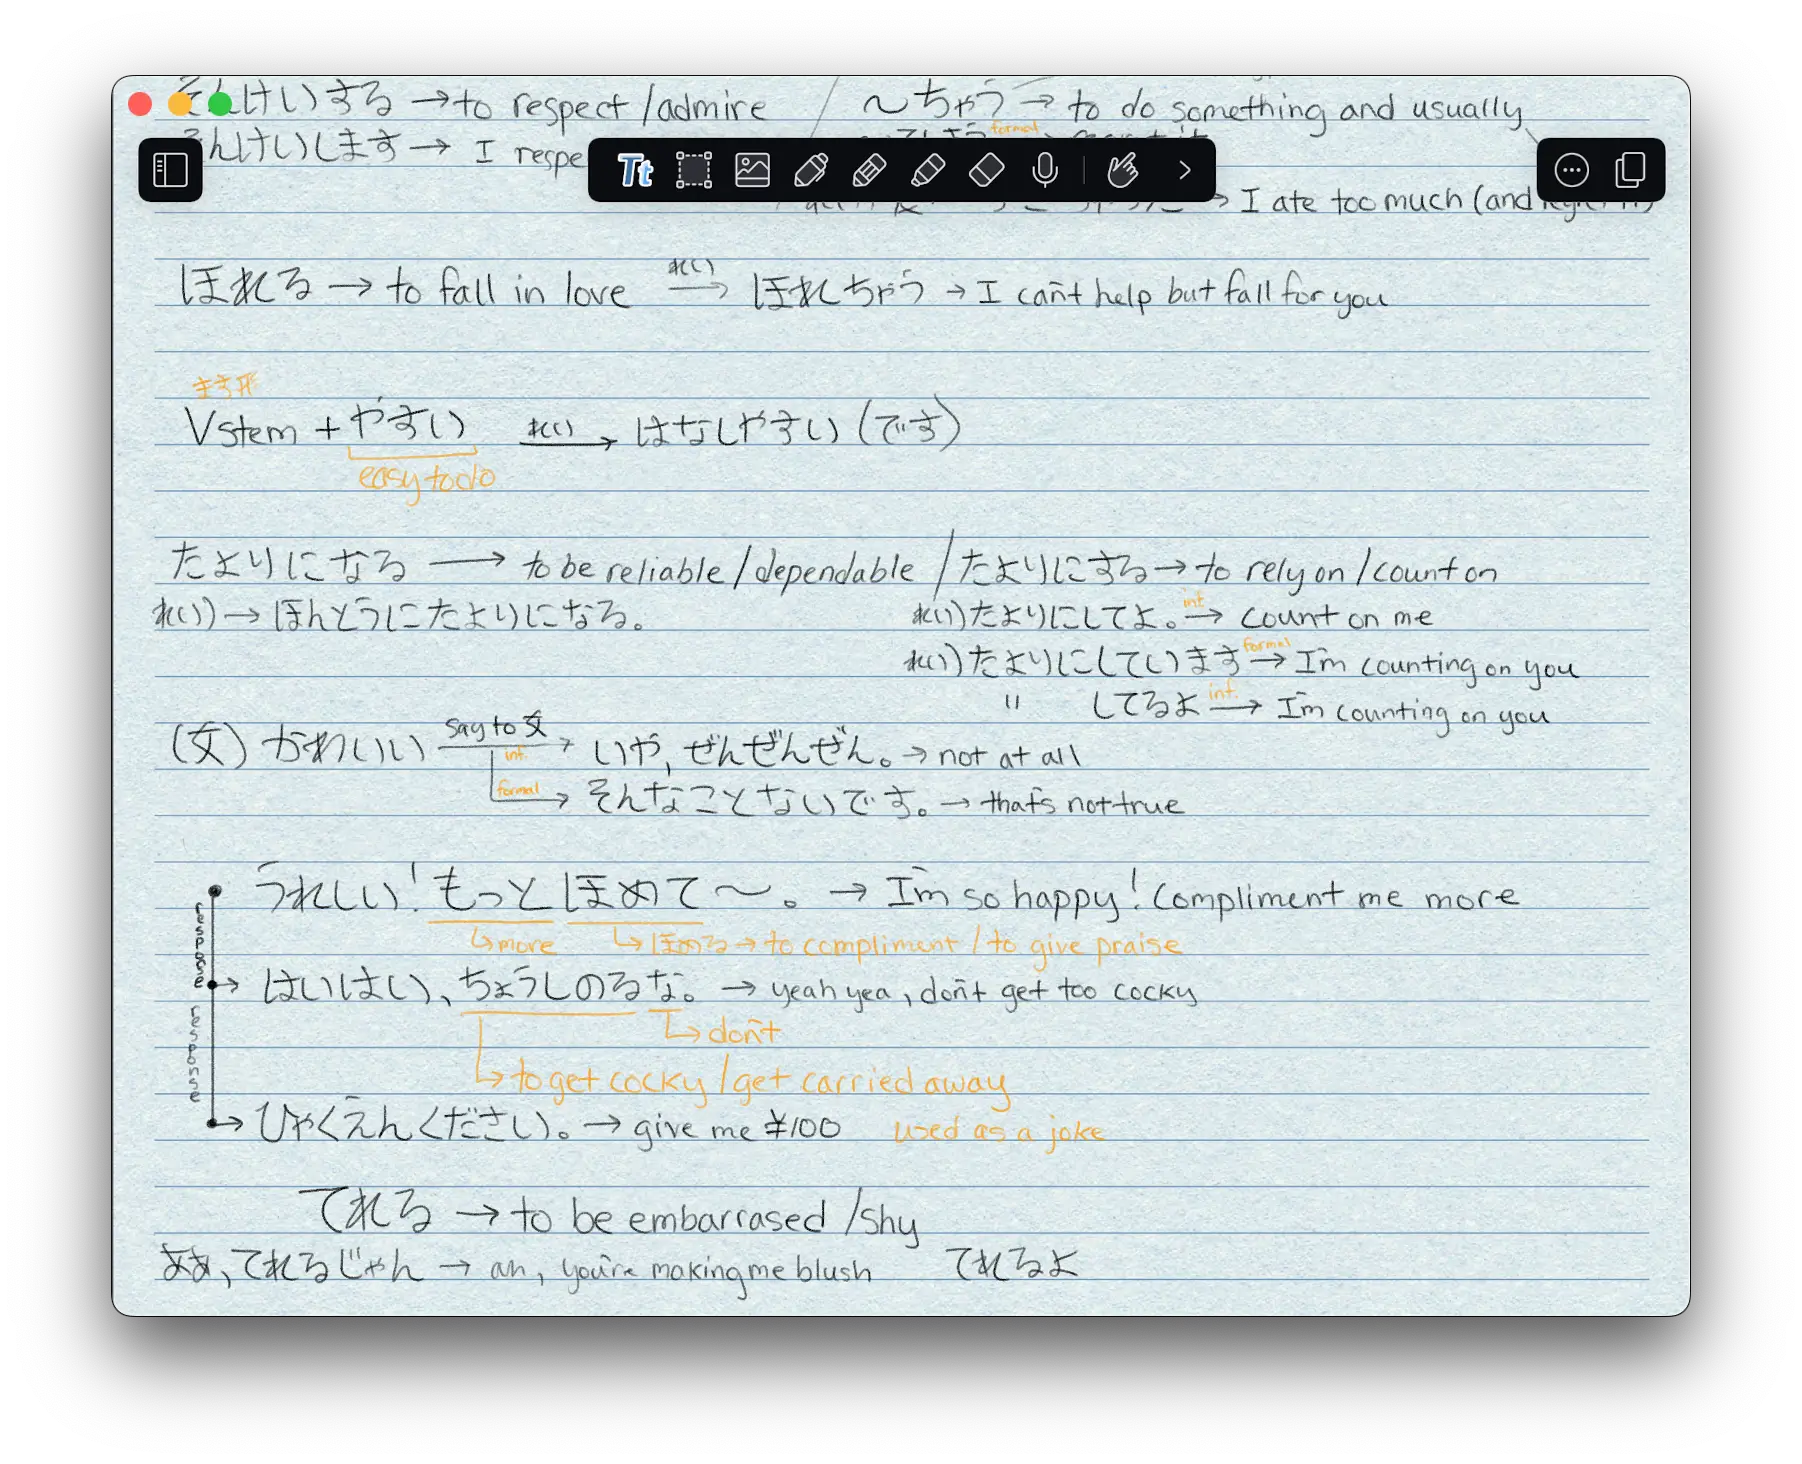 そんけいする → to respect / admire / ～ちゃう → to do something and usually
そんけいします → I respe
formal
→ I ate too much (and
ほれる → to fall in love れい → ほれちゃう → I can't help but fall for you
ます形
Vstem + やすい れい → はなしやすい (です)
easy to do
たよりになる → to be reliable / dependable / たよりにする → to rely on / count on
れい) → ほんとうにたよりになる。 れい) たよりにしてよ。 inf. → count on me
れい) たよりにしています formal → I'm counting on you
〃 してるよ inf. → I'm counting on you
(女) かわいい say to 女 inf. → いや, ぜんぜんぜん。 → not at all
formal → そんなことないです。 → that's not true
うれしい! もっとほめて～。 → I'm so happy! Compliment me more
↳ more ↳ ほめる → to compliment / to give praise
response → はいはい、ちょうしのるな。 → yeah yea, don't get too cocky
↳ don't
↳ to get cocky / get carried away
response → ひゃくえんください。 → give me ¥100 used as a joke
てれる → to be embarrased / shy
ああ, てれるじゃん → ah, you're making me blush てれるよ